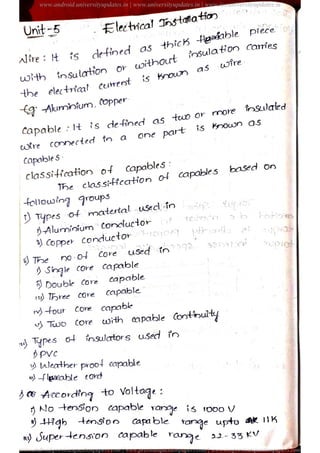 www.android.universityupdates.in | www.universityupdates.in | www.ios.universityupdates.in
Unit-5
Electrical Installation
Wire : It is defined as thick flexiable piece
with insulation or without insulation carries
the electrical current is known as wire
Eg: Aluminium, Copper
Capable : It is defined as two or more insulated
wire connected in a one part is known as
capables
classification of capables :
The classification of capables based on
following groups
1) Types of material used in
1) Aluminium Conductor
2) Copper conductor
The no of Core used in
1) Single core capable
2) Double Core capable
iii) Three core capable
iv) four core capable
v) Two core with capable Continuity
Types of insulators used in
1) PVC
2) Weather proof capable
3) flexiable cord
According to Voltage :
1) No tension capable range is 1000 V
2) High tension capable range upto 11K
iii) Super tension capable range 22-33 KV